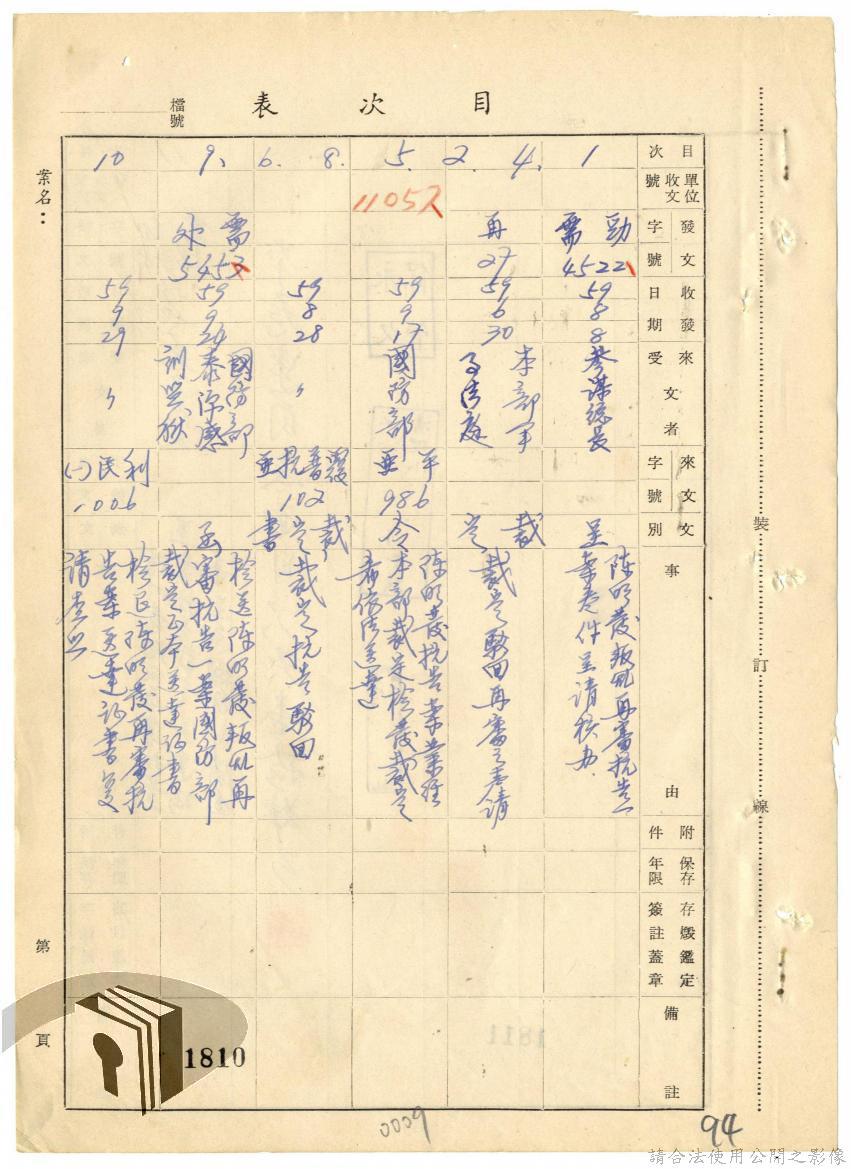 目次表
檔號
案名：
目次
單位收文號
發文字號
收發日期
來受文者
來文字號
文別
事由
附件
保存年限
存燬鑑定簽註蓋章
備註
1
勁需
4522
59
8
8
參謀總長
呈
陳明發叛亂再審抗告
案卷件呈請核办
2. 4.
再
27
59
6
30
本部軍
事法庭
裁定
裁定駁回再審之聲請
5.
11052
59
9
17
國防部
平亜
986
令
陳明發抗告案業經
本部裁定檢發裁定
希依法送達
6. 8.
59
8
28
〃
覆普抗亜
102
裁定書
裁定抗告駁回
9.
需处
5452
59
9
26
國防部
泰源感
訓監獄
函
檢送陳明發叛亂再
審抗告一案國防部
裁定正本送達証書
10
59
9
29
〃
利民(一)
1006
檢還陳明發再審抗
告案送達証書
請查照
第 頁
裝訂線
1810
0009
94
請合法使用公開之影像